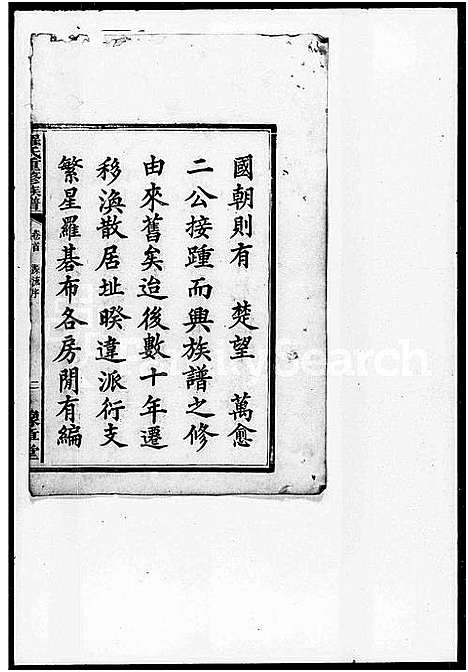 國朝則有 楚望 萬愈
二公接踵而興族譜之修
由來舊矣迨後數十年遷
移渙散居址暌違派衍支
繁星羅碁布各房間有編
羅氏重修族譜 卷首 源流序 二 豫章堂
FamilySearch